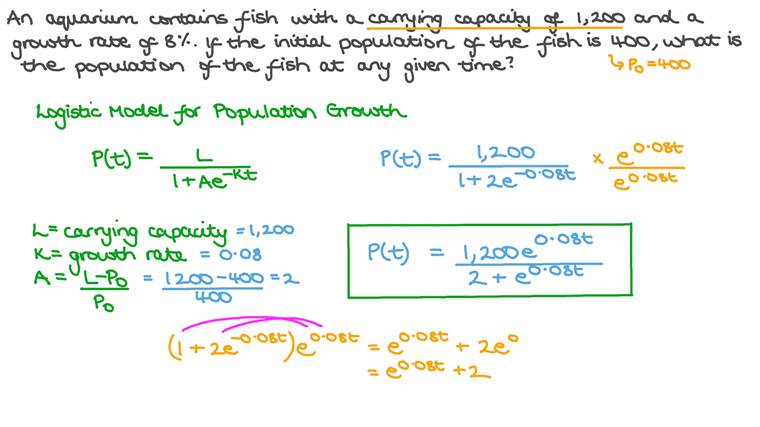 An aquarium contains fish with a carrying capacity of 1,200 and a
growth rate of 8%. If the initial population of the fish is 400, what is
the population of the fish at any given time?
↳ P₀ = 400
Logistic Model for Population Growth
P(t) = L / (1 + Ae^(-Kt))
P(t) = 1,200 / (1 + 2e^(-0.08t)) × e^(0.08t) / e^(0.08t)
L = carrying capacity = 1,200
K = growth rate = 0.08
A = (L - P₀) / P₀ = (1200 - 400) / 400 = 2
P(t) = 1,200e^(0.08t) / (2 + e^(0.08t))
(1 + 2e^(-0.08t))e^(0.08t) = e^(0.08t) + 2e^0
= e^(0.08t) + 2